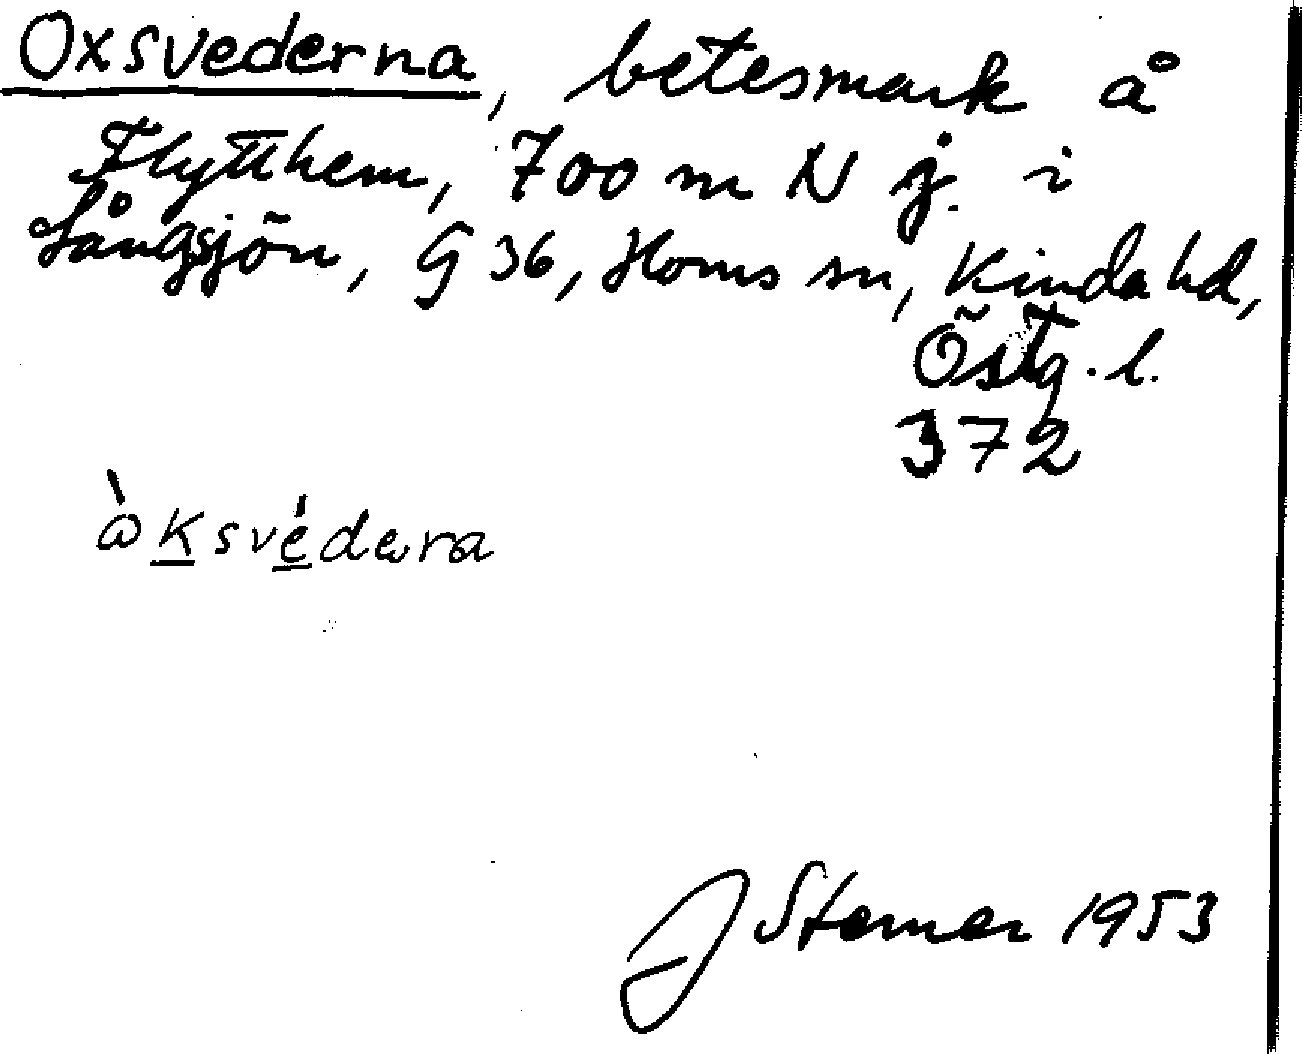 Oxsvederna, betesmark å
Flytthem, 700 m N j. i
Långsjön, G 36, Horns sn, Kinda hd,
Östg. l.
372
òksvédəra
J Sterner 1953